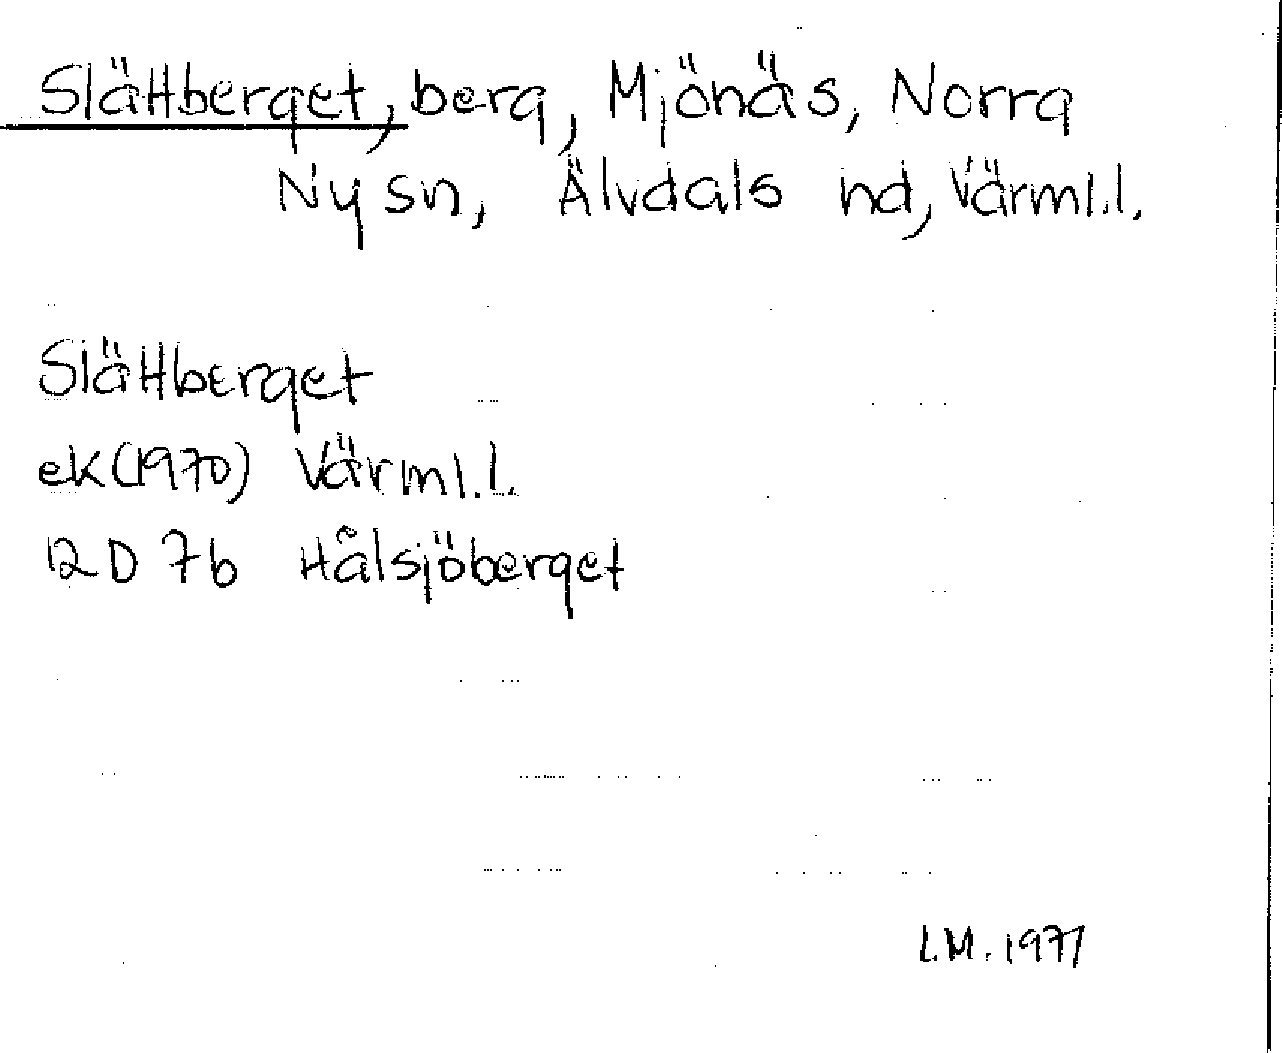 Slättberget, berg, Mjönäs, Norra
Ny sn, Älvdals hd, Värml.l.
Slättberget
ek (1970) Värml.l.
12D 7b Hålsjöberget
L.M. 1977